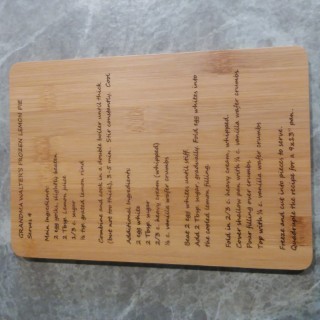 GRANDMA WALTER'S FROZEN LEMON PIE
Serves 4
Main Ingredients:
2 egg yolks, slightly beaten
2 Tbsp. Lemon juice
2/3 c. sugar
¼ tsp. grated lemon rind
Combine and cook in a double boiler until thick
(but not too thick), 3-5 min. Stir constantly. Cool
Additional Ingredients:
2 egg white
2 Tbsp. sugar
2/3 c. heavy cream (whipped)
½ c. vanilla wafer crumbs
Beat 2 egg whites until stiff.
Add 2 Tbsp. sugar, gradually. Fold egg whites into
the cooled lemon filling.
Fold in 2/3 c. heavy cream, whipped.
Cover shallow pan with ¼ c. vanilla wafer crumbs
Pour filling over crumbs
Top with ¼ c. vanilla wafer crumbs
Freeze and cut into pieces to serve.
Quadruple the recipe for a 9x13" pan.